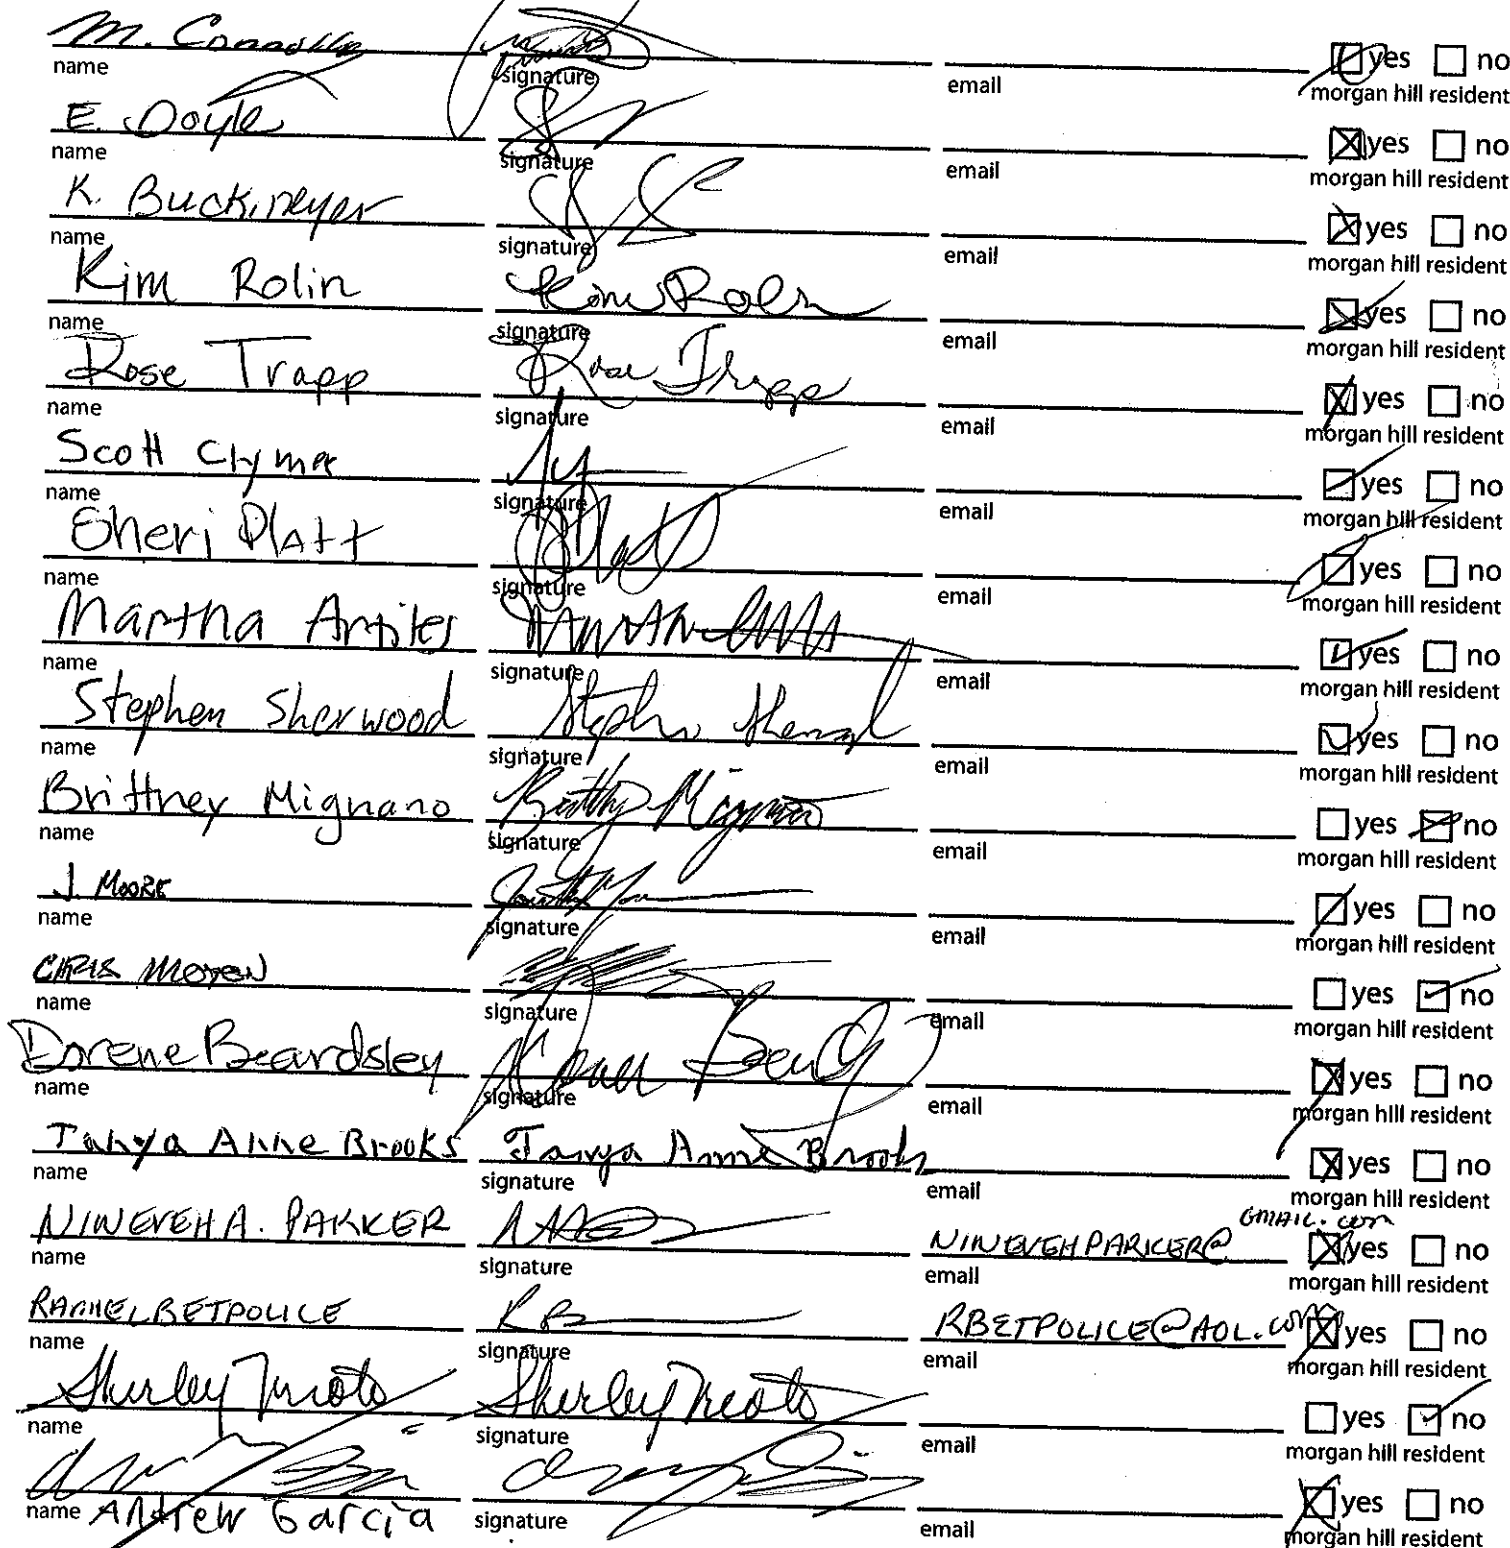 M. Connolly
name signature email yes no
morgan hill resident
E. Doyle
name signature email yes no
morgan hill resident
K. Buckmeyer
name signature email yes no
morgan hill resident
Kim Rolin Kim Rolin
name signature email yes no
morgan hill resident
Rose Trapp Rose Trapp
name signature email yes no
morgan hill resident
Scott Clymer
name signature email yes no
morgan hill resident
Sheri Platt
name signature email yes no
morgan hill resident
Martha Artiles
name signature email yes no
morgan hill resident
Stephen Sherwood
name signature email yes no
morgan hill resident
Brittney Mignano
name signature email yes no
morgan hill resident
J Moore
name signature email yes no
morgan hill resident
CHRIS
name signature email yes no
morgan hill resident
Dorene Beardsley
name signature email yes no
morgan hill resident
Tanya Anne Brooks Tanya Anne Brooks
name signature email yes no
morgan hill resident
NINEVEH A. PARKER NINEVEHPARKER@ GMAIL.COM
name signature email yes no
morgan hill resident
RACHEL BETPOLICE RB RBETPOLICE@AOL.COM
name signature email yes no
morgan hill resident
Shirley Shirley
name signature email yes no
morgan hill resident
name Andrew Garcia signature email yes no
morgan hill resident